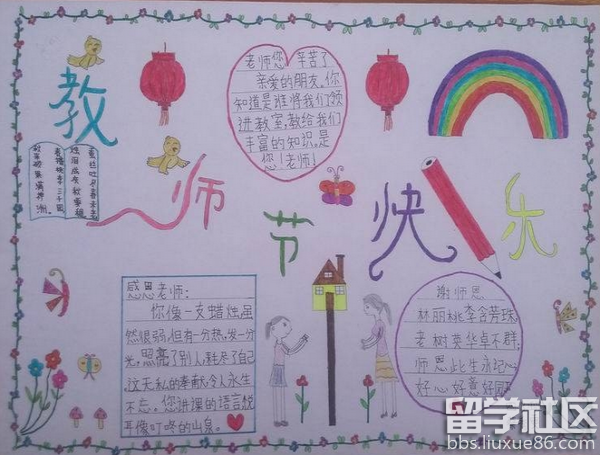 教师节快乐
老师您辛苦了
亲爱的朋友,你
知道是谁将我们领
进教室,教给我们
丰富的知识,是
您!老师!
感恩老师:
你像一支蜡烛虽
然很弱,但有一分热,发一分
光,照亮了别人,耗尽了自己
,这无私的奉献,令人永生
不忘。您讲课的语言,悦
耳像叮咚的山泉。
谢师恩
林丽桃李含芳珠
老树英华卓不群,
师恩此生永记心
好心好意好园
留学社区
bbs.liuxue86.com